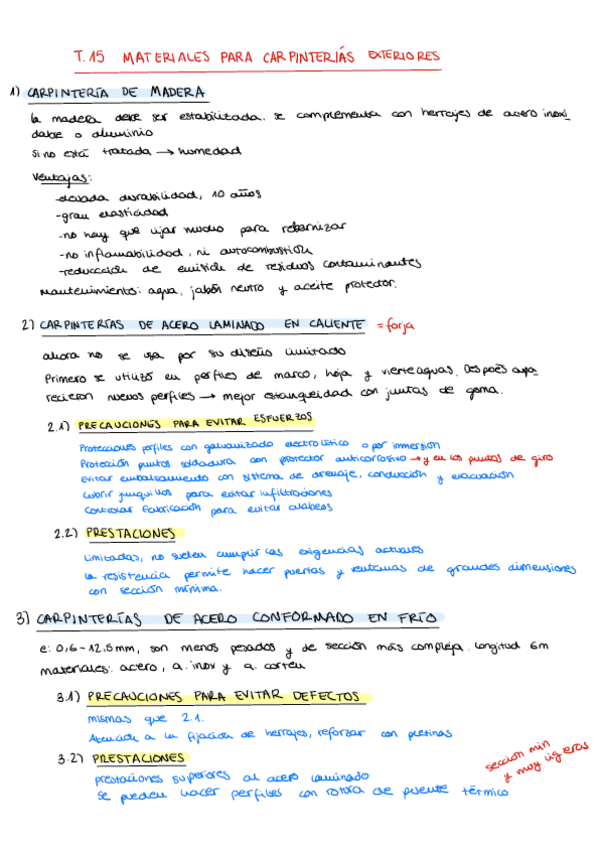 T.15 MATERIALES PARA CARPINTERIÁS EXTERIORES
1) CARPINTERÍA DE MADERA
la madera debe ser estabilizada. se complementa con herrajes de acero inoxi
dable o aluminio
Si no está tratada → humedad
Ventajas:
-elevada durabilidad, 10 años
-gran elasticidad
-no hay que lijar mucho para rebarnizar
-no inflamabilidad, ni autocombustión
-reducción de emisión de residuos contaminantes
Mantenimiento: agua, jabón neutro y aceite protector.
2) CARPINTERÍAS DE ACERO LAMINADO EN CALIENTE = forja
ahora no se usa por su diseño limitado
Primero se utilizó en perfiles de marco, hoja y vierteaguas. Después apa-
recieron nuevos perfiles → mejor estanqueidad con juntas de goma.
2.1) PRECAUCIONES PARA EVITAR ESFUERZOS
Protecciones perfiles con galvanizado electrolítico o por inmersión
Protección puntos soldadura con protector anticorrosivo → y en los puntos de giro
Evitar embalsamiento con sistema de drenaje, conducción y evacuación
Cubrir junquillos para evitar infiltraciones
Controlar fabricación para evitar alabeos
2.2) PRESTACIONES
Limitadas, no suelen cumplir las exigencias actuales
La resistencia permite hacer puertas y ventanas de grandes dimensiones
con sección mínima.
3) CARPINTERÍAS DE ACERO CONFORMADO EN FRÍO
e: 0,6 - 12.5mm, son menos pesados y de sección más compleja. longitud 6m
materiales: acero, a. inox y a. corten
3.1) PRECAUCIONES PARA EVITAR DEFECTOS
mismas que 2.1.
Atención a la fijación de herrajes, reforzar con pletinas
3.2) PRESTACIONES
prestaciones superiores al acero laminado
se pueden hacer perfiles con rotura de puente térmico
sección min
y muy ligeros